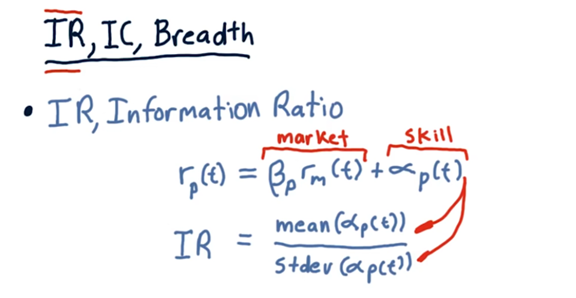 IR, IC, Breadth
• IR, Information Ratio
market skill
rₚ(t) = βₚ rₘ(t) + αₚ(t)
IR = mean(αₚ(t)) / stdev(αₚ(t))